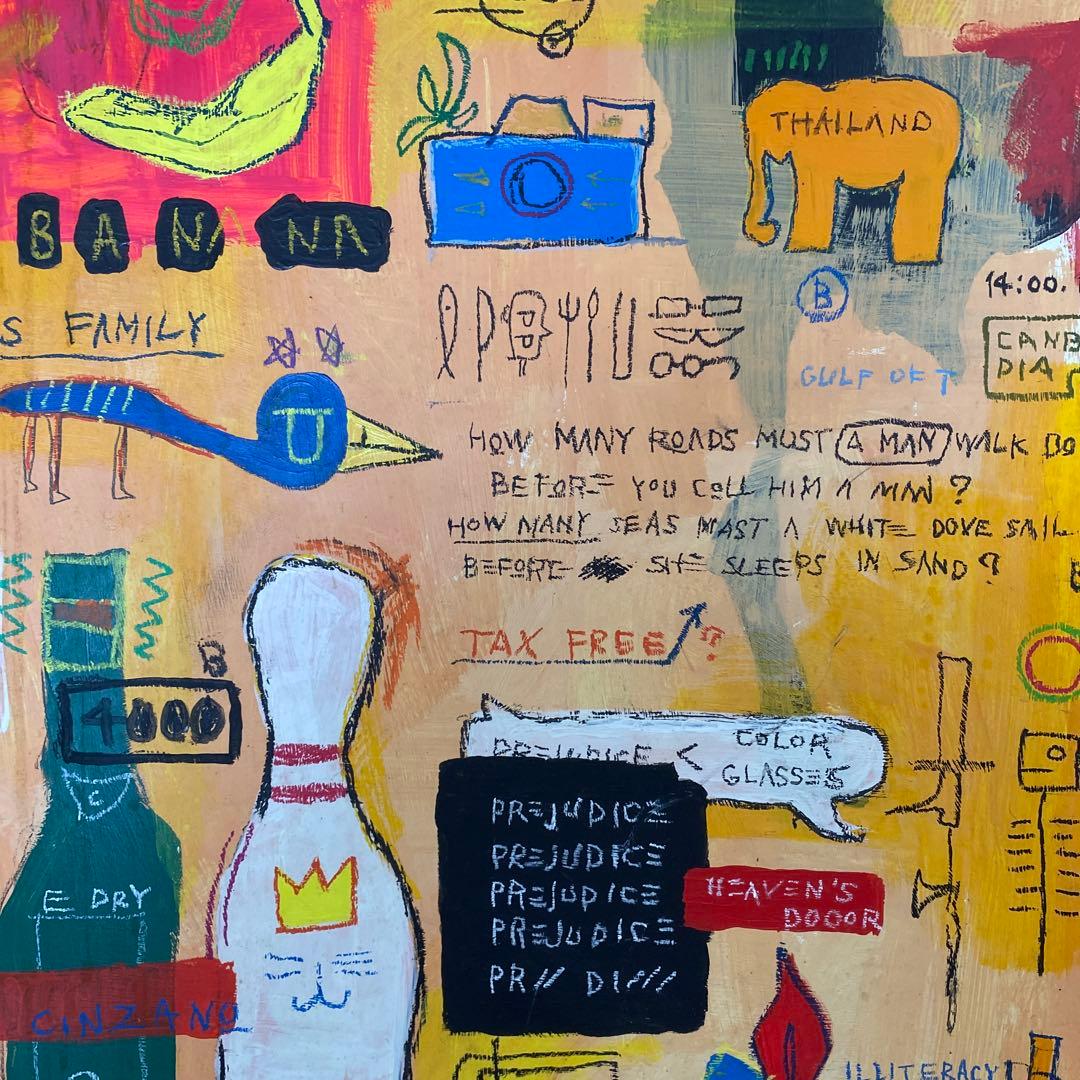 THAILAND
BANANA
B
14:00.
S FAMILY
CANB
DIA
GULF OF T
U
HOW MANY ROADS MUST A MAN WALK DO
BEFORE YOU COLL HIM A MAN ?
HOW MANY SEAS MAST A WHITE DOVE SAIL
BEFORE SHE SLEEPS IN SAND ?
TAX FREE ?
B
4000
PREJUDICE < COLOR
GLASSES
C
PREJUDICE
PREJUDICE
PREJUDICE
PREJUDICE
PR// DI///
HEAVEN'S
DOOOR
E DRY
CINZANO
ILLITERACY